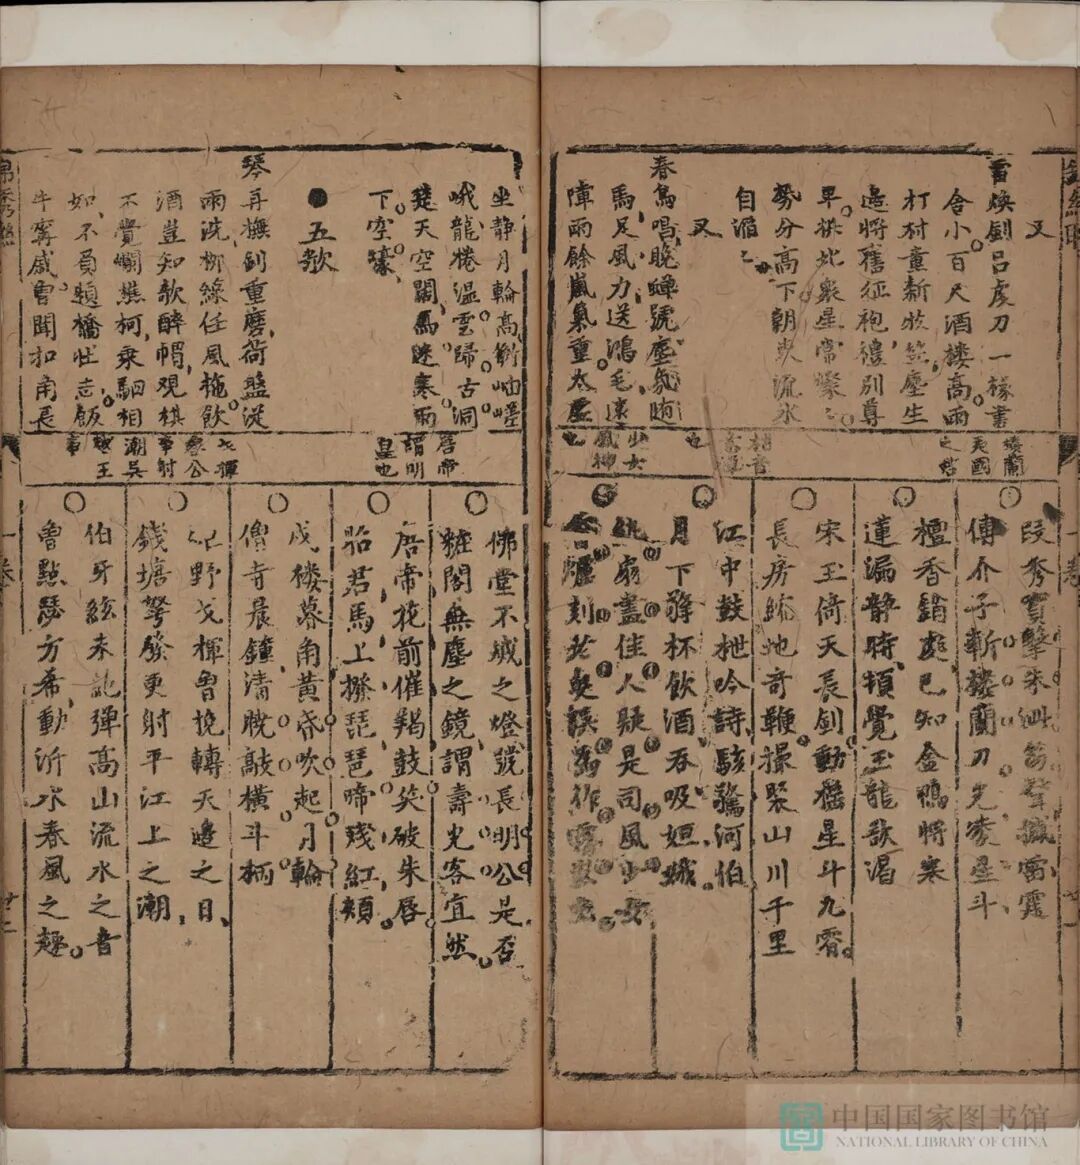 又
雪煥劍呂虔刀一椽書
舍小百尺酒樓高雨
打村童新妝笠塵生
邊將舊征袍禮別尊
卑拱北衆星常燦
勢分高下朝東流水
自滔
又
春鳥唱晚蟬號塵氛
馬足風力送鴻毛遠
障雨餘嵐氣重太虛
樓蘭
夷國
也
少女
風神
也
段秀實擊朱泚笏聲振雷霆
傅介子斬樓蘭刀光凌星斗
檀香銷處已知金鴨將寒
蓮漏静時頓覺玉龍欲涸
宋玉倚天長劍動搖星斗九霄
長房縮地奇鞭操聚山川千里
江中鼓枻吟詩駭驚河伯
月下擎杯飲酒吞吸姮娥
紈扇畫佳人疑是司風少女
坐静月輪高衡岫嵯
峨龍棬温雲歸古洞
楚天空闊鳥送寒雨
下空濠
●五歌
琴再撫劍重磨荷盤從
雨洗柳線任風拖飲
酒豈知歌醉帽觀棋
不覺爛樵柯乘駟相
如不負題橋壯志飯
牛甯戚曾聞扣角長
唐帝
謂明
皇也
戈揮
魯公
事射
潮吳
越王
事
佛堂不滅之燈號長明公是否
粧閣無塵之鏡謂壽光客宜然
唐帝花前催羯鼓笑破朱唇
昭君馬上撥琵琶啼殘紅頰
戍樓暮角黄昏吹起月輪
僧寺晨鐘清曉敲橫斗柄
野戈揮魯挽轉天邊之日
錢塘弩發更射平江上之潮
伯牙絃未訖彈高山流水之音
魯點瑟方希動沂水春風之趣
中国国家图书馆
NATIONAL LIBRARY OF CHINA